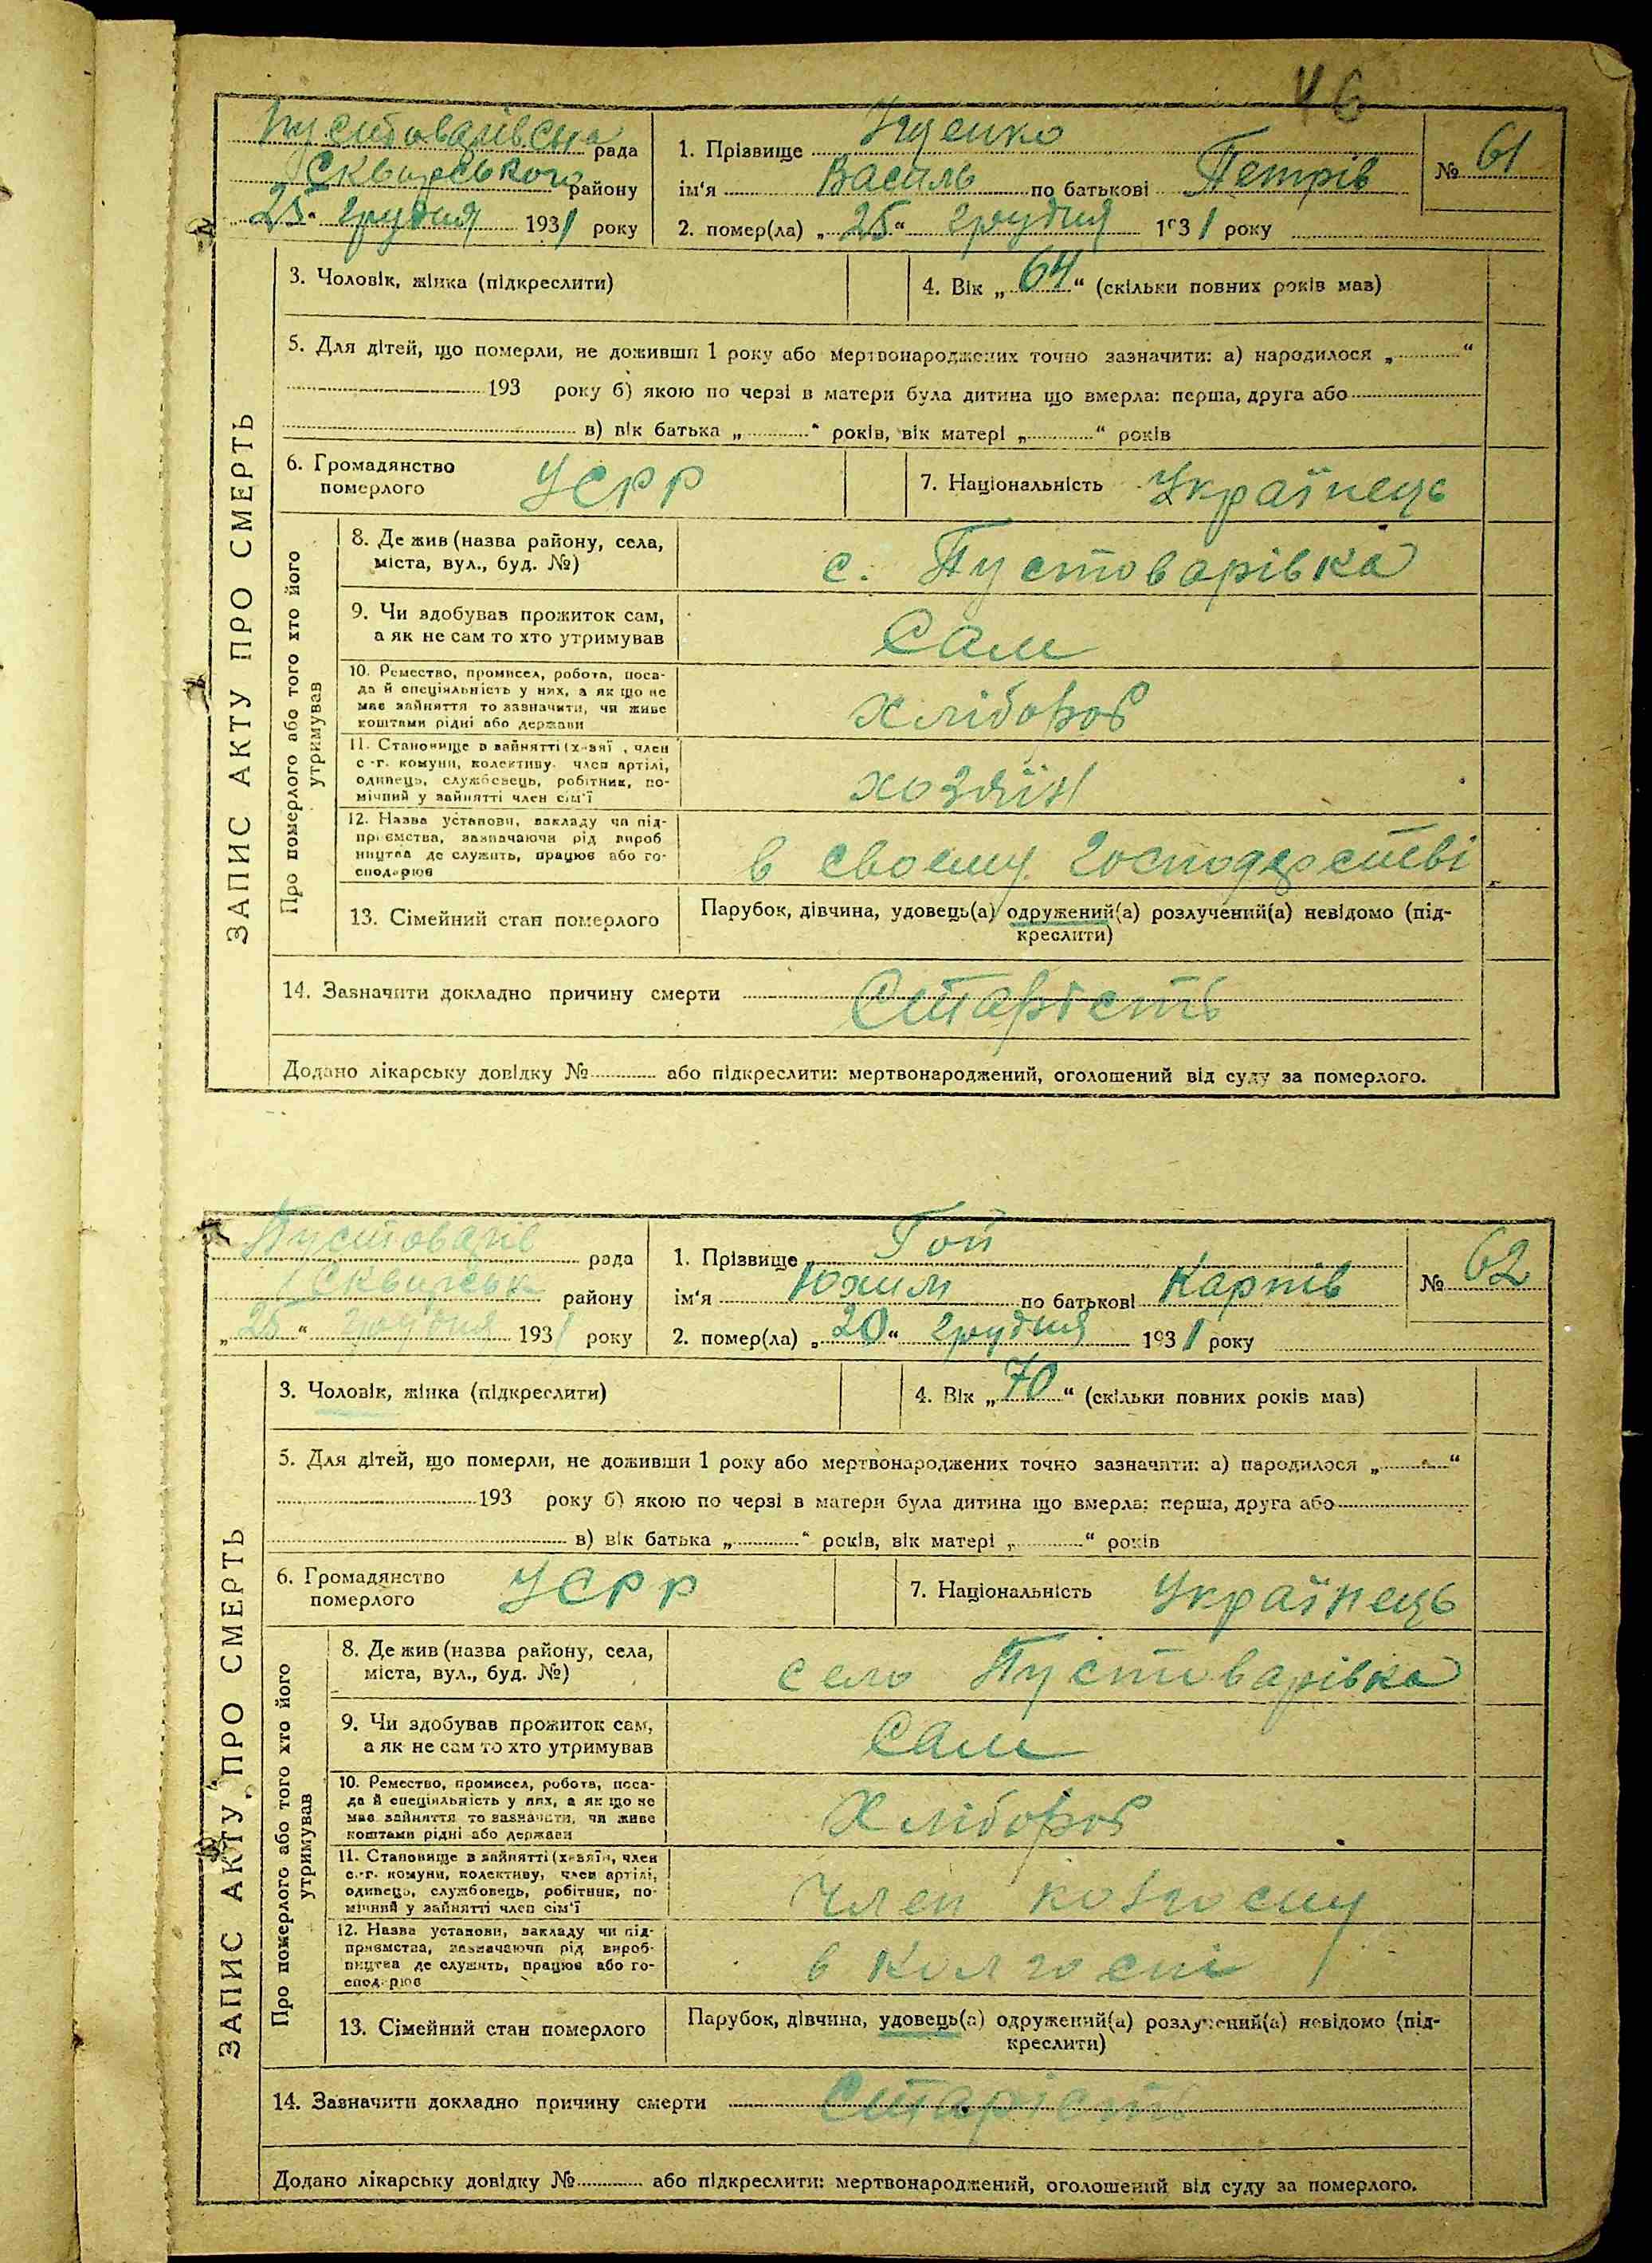 46
Пустоварівська рада
Сквирського району
„25“ грудня 1931 року
1. Прізвище Іщенко
ім‘я Василь по батькові Петрів
№ 61
2. помер(ла) „25“ грудня 1931 року
ЗАПИС АКТУ ПРО СМЕРТЬ
3. Чоловік, жінка (підкреслити)
4. Вік „64“ (скільки повних років мав)
5. Для дітей, що померли, не доживши 1 року або мертвонароджених точно зазначити: а) народилося „ “
193 року б) якою по черзі в матери була дитина що вмерла: перша, друга або
в) вік батька „ “ років, вік матері „ “ років
6. Громадянство
померлого
УСРР
7. Національність Українець
Про померлого або того хто його
утримував
8. Де жив (назва району, села,
міста, вул., буд. №)
с. Пустоварівка
9. Чи здобував прожиток сам,
а як не сам то хто утримував
Сам
10. Ремество, промисел, робота, поса-
да й спеціяльність у них, а як що не
має зайняття то зазначити, чи живе
коштами рідні або держави
хлібороб
11. Становище в зайнятті (х-зяї , член
с -г. комуни, колективу, член артілі,
одинець, службовець, робітник, по-
мічний у зайнятті член сім‘ї
хозяїн
12. Назва установи, закладу чи під-
приємства, зазначаючи рід вироб
ництва де служить, працює або го-
сподарює
в своему господарстві
13. Сімейний стан померлого
Парубок, дівчина, удовець(а) одружений(а) розлучений(а) невідомо (під-
креслити)
14. Зазначити докладно причину смерти Старість
Додано лікарську довідку № або підкреслити: мертвонароджений, оголошений від суду за померлого.
Пустоварів рада
Сквирськ району
„25“ грудня 1931 року
1. Прізвище Гой
ім‘я Юхим по батькові Карпів
№ 62
2. помер(ла) „20“ грудня 1931 року
ЗАПИС АКТУ ПРО СМЕРТЬ
3. Чоловік, жінка (підкреслити)
4. Вік „70“ (скільки повних років мав)
5. Для дітей, що померли, не доживши 1 року або мертвонароджених точно зазначити: а) народилося „ “
193 року б) якою по черзі в матери була дитина що вмерла: перша, друга або
в) вік батька „ “ років, вік матері „ “ років
6. Громадянство
померлого
УСРР
7. Національність Українець
Про померлого або того хто його
утримував
8. Де жив (назва району, села,
міста, вул., буд. №)
село Пустоварівка
9. Чи здобував прожиток сам,
а як не сам то хто утримував
Сам
10. Ремество, промисел, робота, поса-
да й спеціяльність у них, а як що не
має зайняття то зазначити, чи живе
коштами рідні або держави
Хлібороб
11. Становище в зайнятті (х-зяїн, член
с.-г. комуни, колективу, член артілі,
одинець, службовець, робітник, по-
мічний у зайнятті член сім‘ї
Член колгоспу
12. Назва установи, закладу чи під-
приємства, зазначаючи рід вироб-
ництва де служить, працює або го-
сподарює
в колгоспі
13. Сімейний стан померлого
Парубок, дівчина, удовець(а) одружений(а) розлучений(а) невідомо (під-
креслити)
14. Зазначити докладно причину смерти Старість
Додано лікарську довідку № або підкреслити: мертвонароджений, оголошений від суду за померлого.